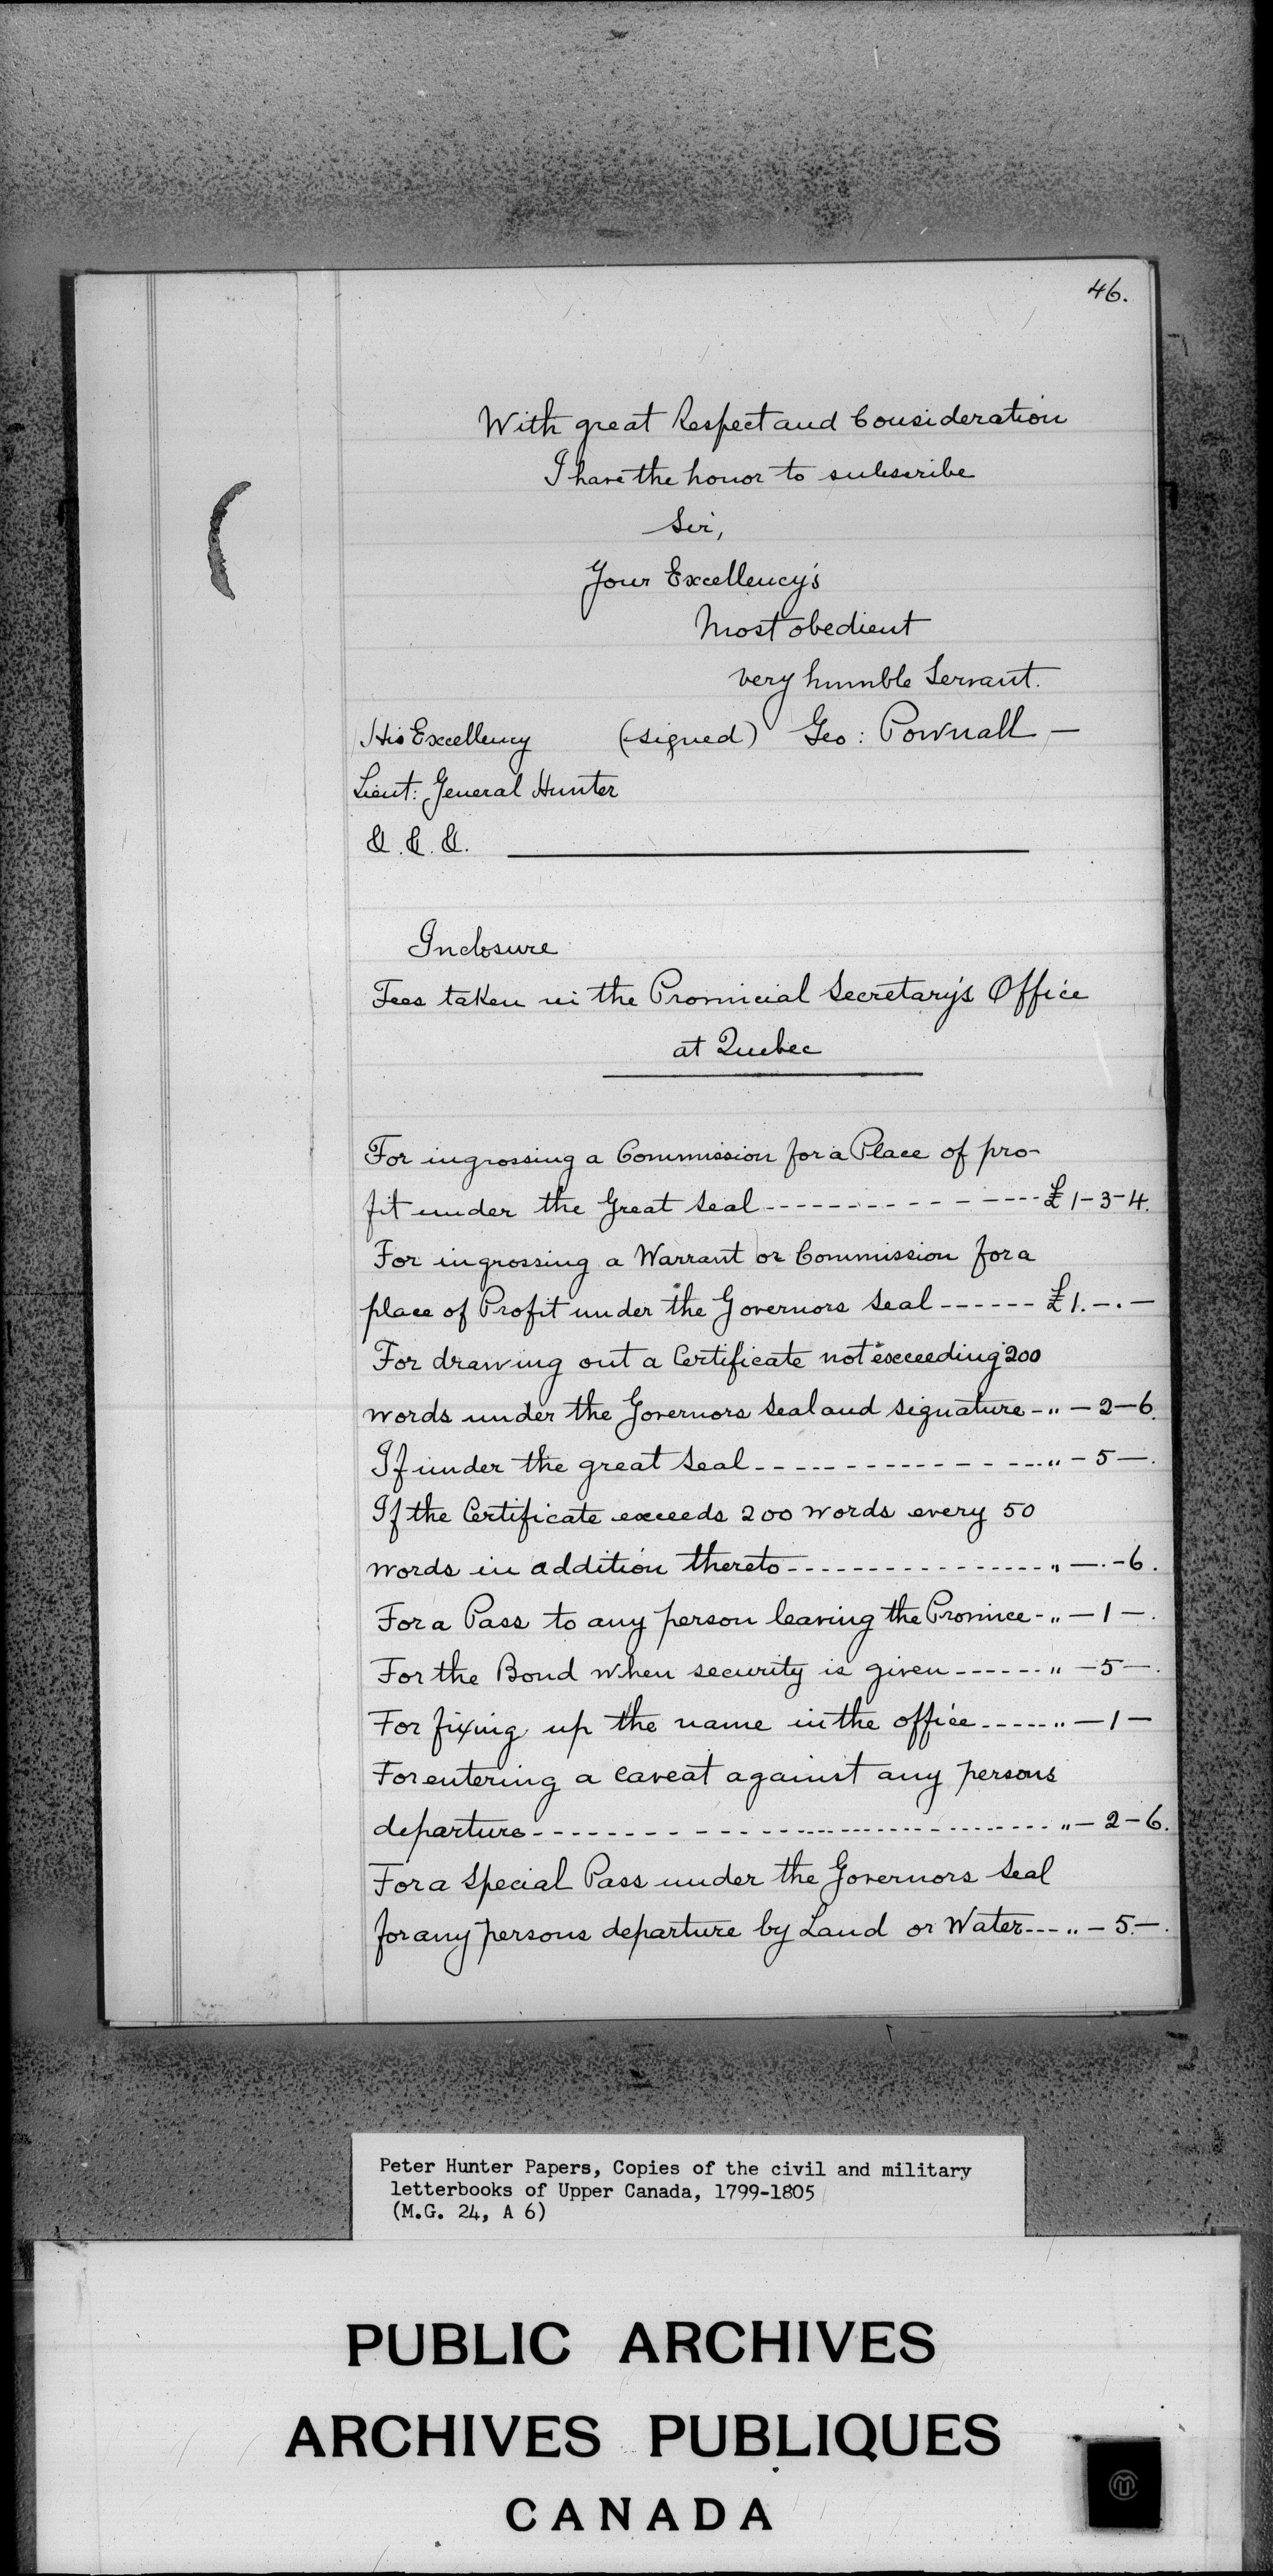 46.
With great Respect and Consideration
I have the honor to subscribe
Sir,
Your Excellency's
Most obedient
very humble Servant.
His Excellency (signed) Geo: Pownall —
Lieut: General Hunter
&. &. &.
Inclosure
Fees taken in the Provincial Secretary's Office
at Quebec
For ingrossing a Commission for a Place of pro-
fit under the Great Seal ------------- £1-3-4.
For ingrossing a Warrant or Commission for a
place of Profit under the Governors Seal ------ £1.-.—
For drawing out a Certificate not exceeding 200
words under the Governors Seal and signature - " — 2 — 6.
If under the great Seal ---------------- " - 5 —.
If the Certificate exceeds 200 words every 50
words in addition thereto ----------------- " —.-6.
For a Pass to any person leaving the Province - " — 1 —.
For the Bond when security is given ------ " — 5 —.
For fixing up the name in the office ------ " — 1 —
For entering a caveat against any persons
departure ------------------------------ " — 2 - 6.
For a Special Pass under the Governors Seal
for any persons departure by Land or Water --- " - 5.—.
Peter Hunter Papers, Copies of the civil and military
letterbooks of Upper Canada, 1799-1805
(M.G. 24, A 6)
PUBLIC ARCHIVES
ARCHIVES PUBLIQUES
CANADA